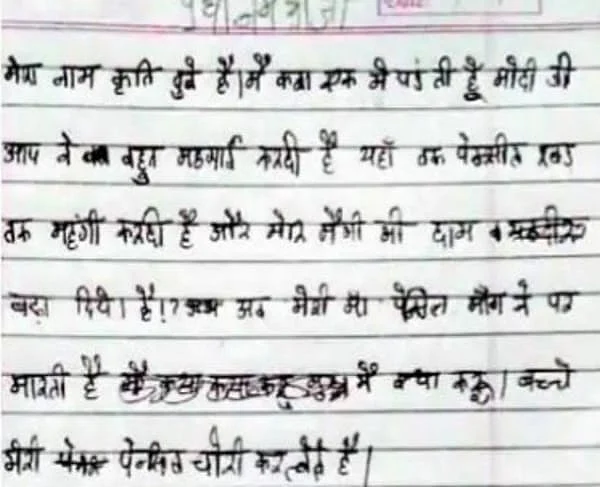 प्रधानमंत्री जी
मेरा नाम कृति दुबे है। मै कक्षा एक मे पड ती हूँ मोदी जी
आप ने बहुत महगाई करदी है यहाँ तक पेनसील रबड
तक महंगी करदी है और मेरि मैगी भी दाम
बढ़ा दिये। है!? अब मेरी मा पेंसिल माँग ने पर
मारती है मै क्या करू। बच्चे
मेरी पेनसिल चोरी कर लेते है।